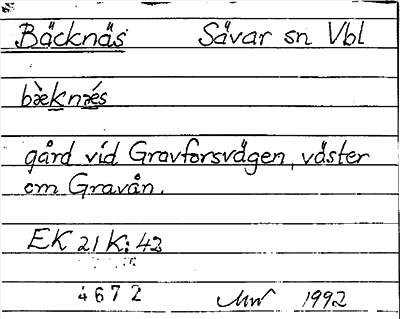 Bäcknäs Sävar sn Vbl
bæ̀knǽs
gård vid Gravforsvägen, väster
om Gravån.
EK 21 K: 42
4672 MW 1992